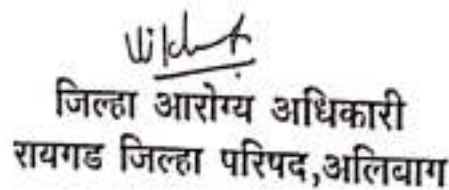 जिल्हा आरोग्य अधिकारी
रायगड जिल्हा परिषद,अलिबाग